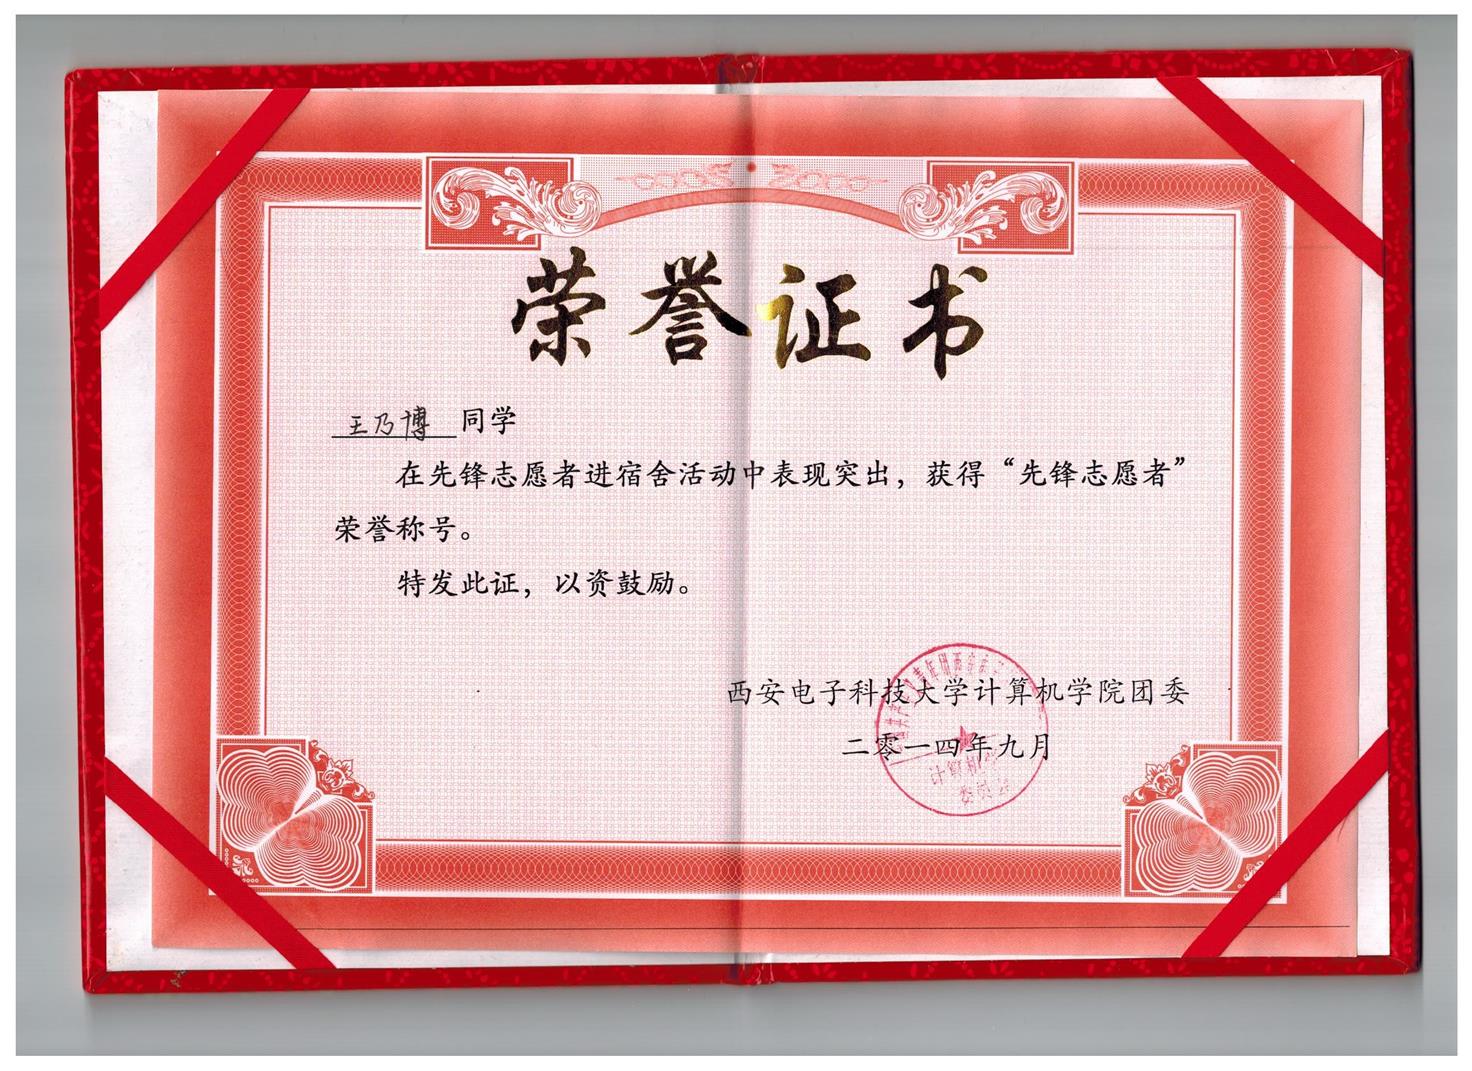 荣誉证书
王乃博 同学
在先锋志愿者进宿舍活动中表现突出，获得“先锋志愿者”
荣誉称号。
特发此证，以资鼓励。
西安电子科技大学计算机学院团委
二零一四年九月
计算机
委员会